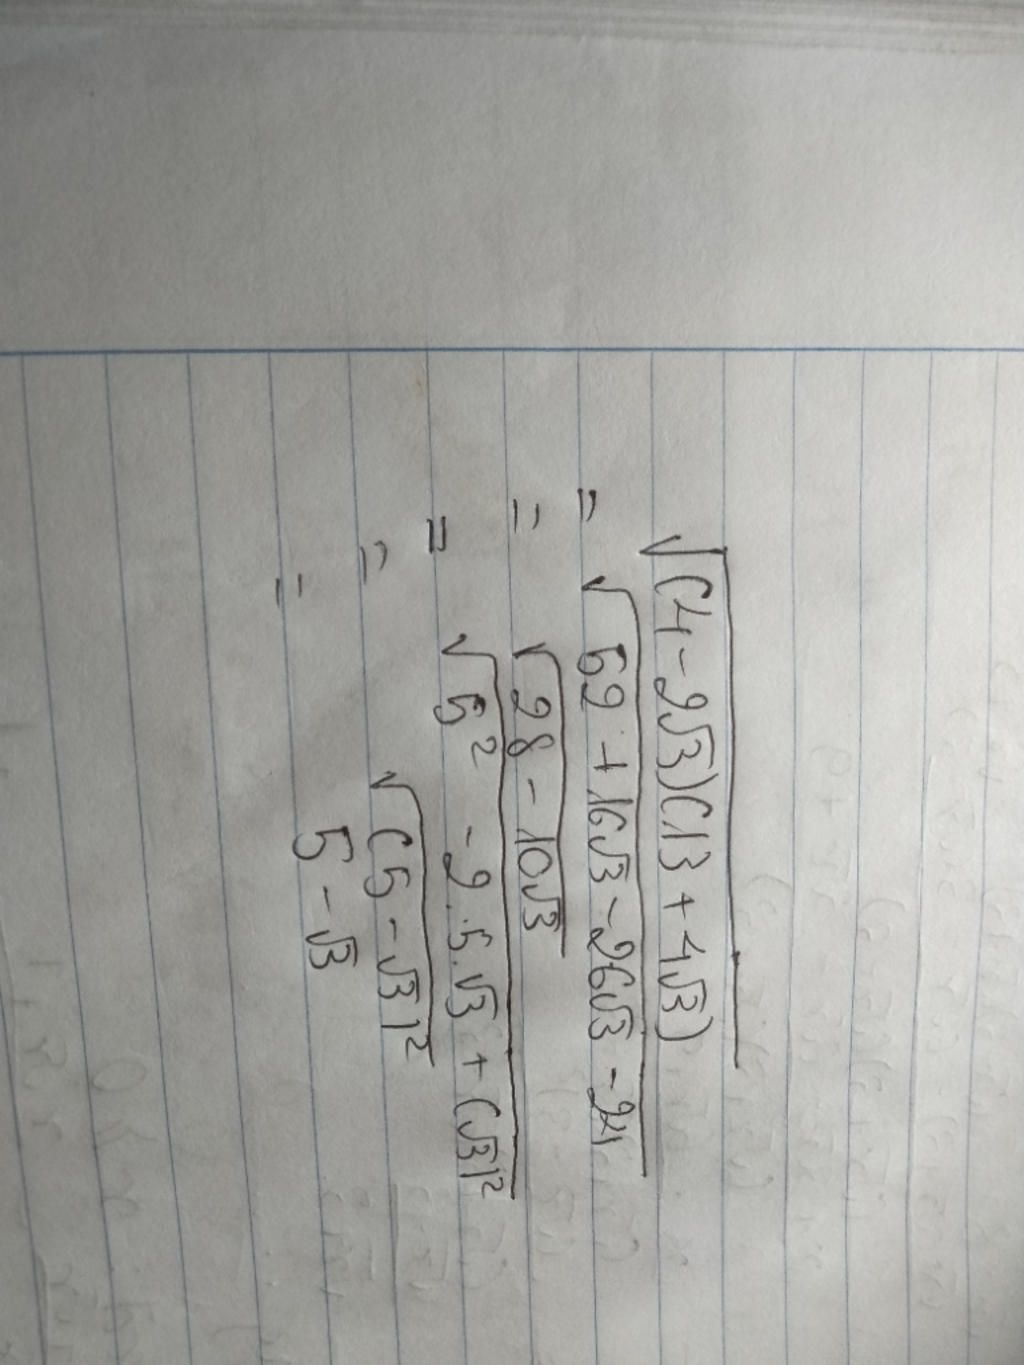 √(4-2√3)(13+4√3)
= √52+16√3-26√3-24
= √28-10√3
= √5² -2.5.√3 + (√3)²
= √(5-√3)²
= 5-√3